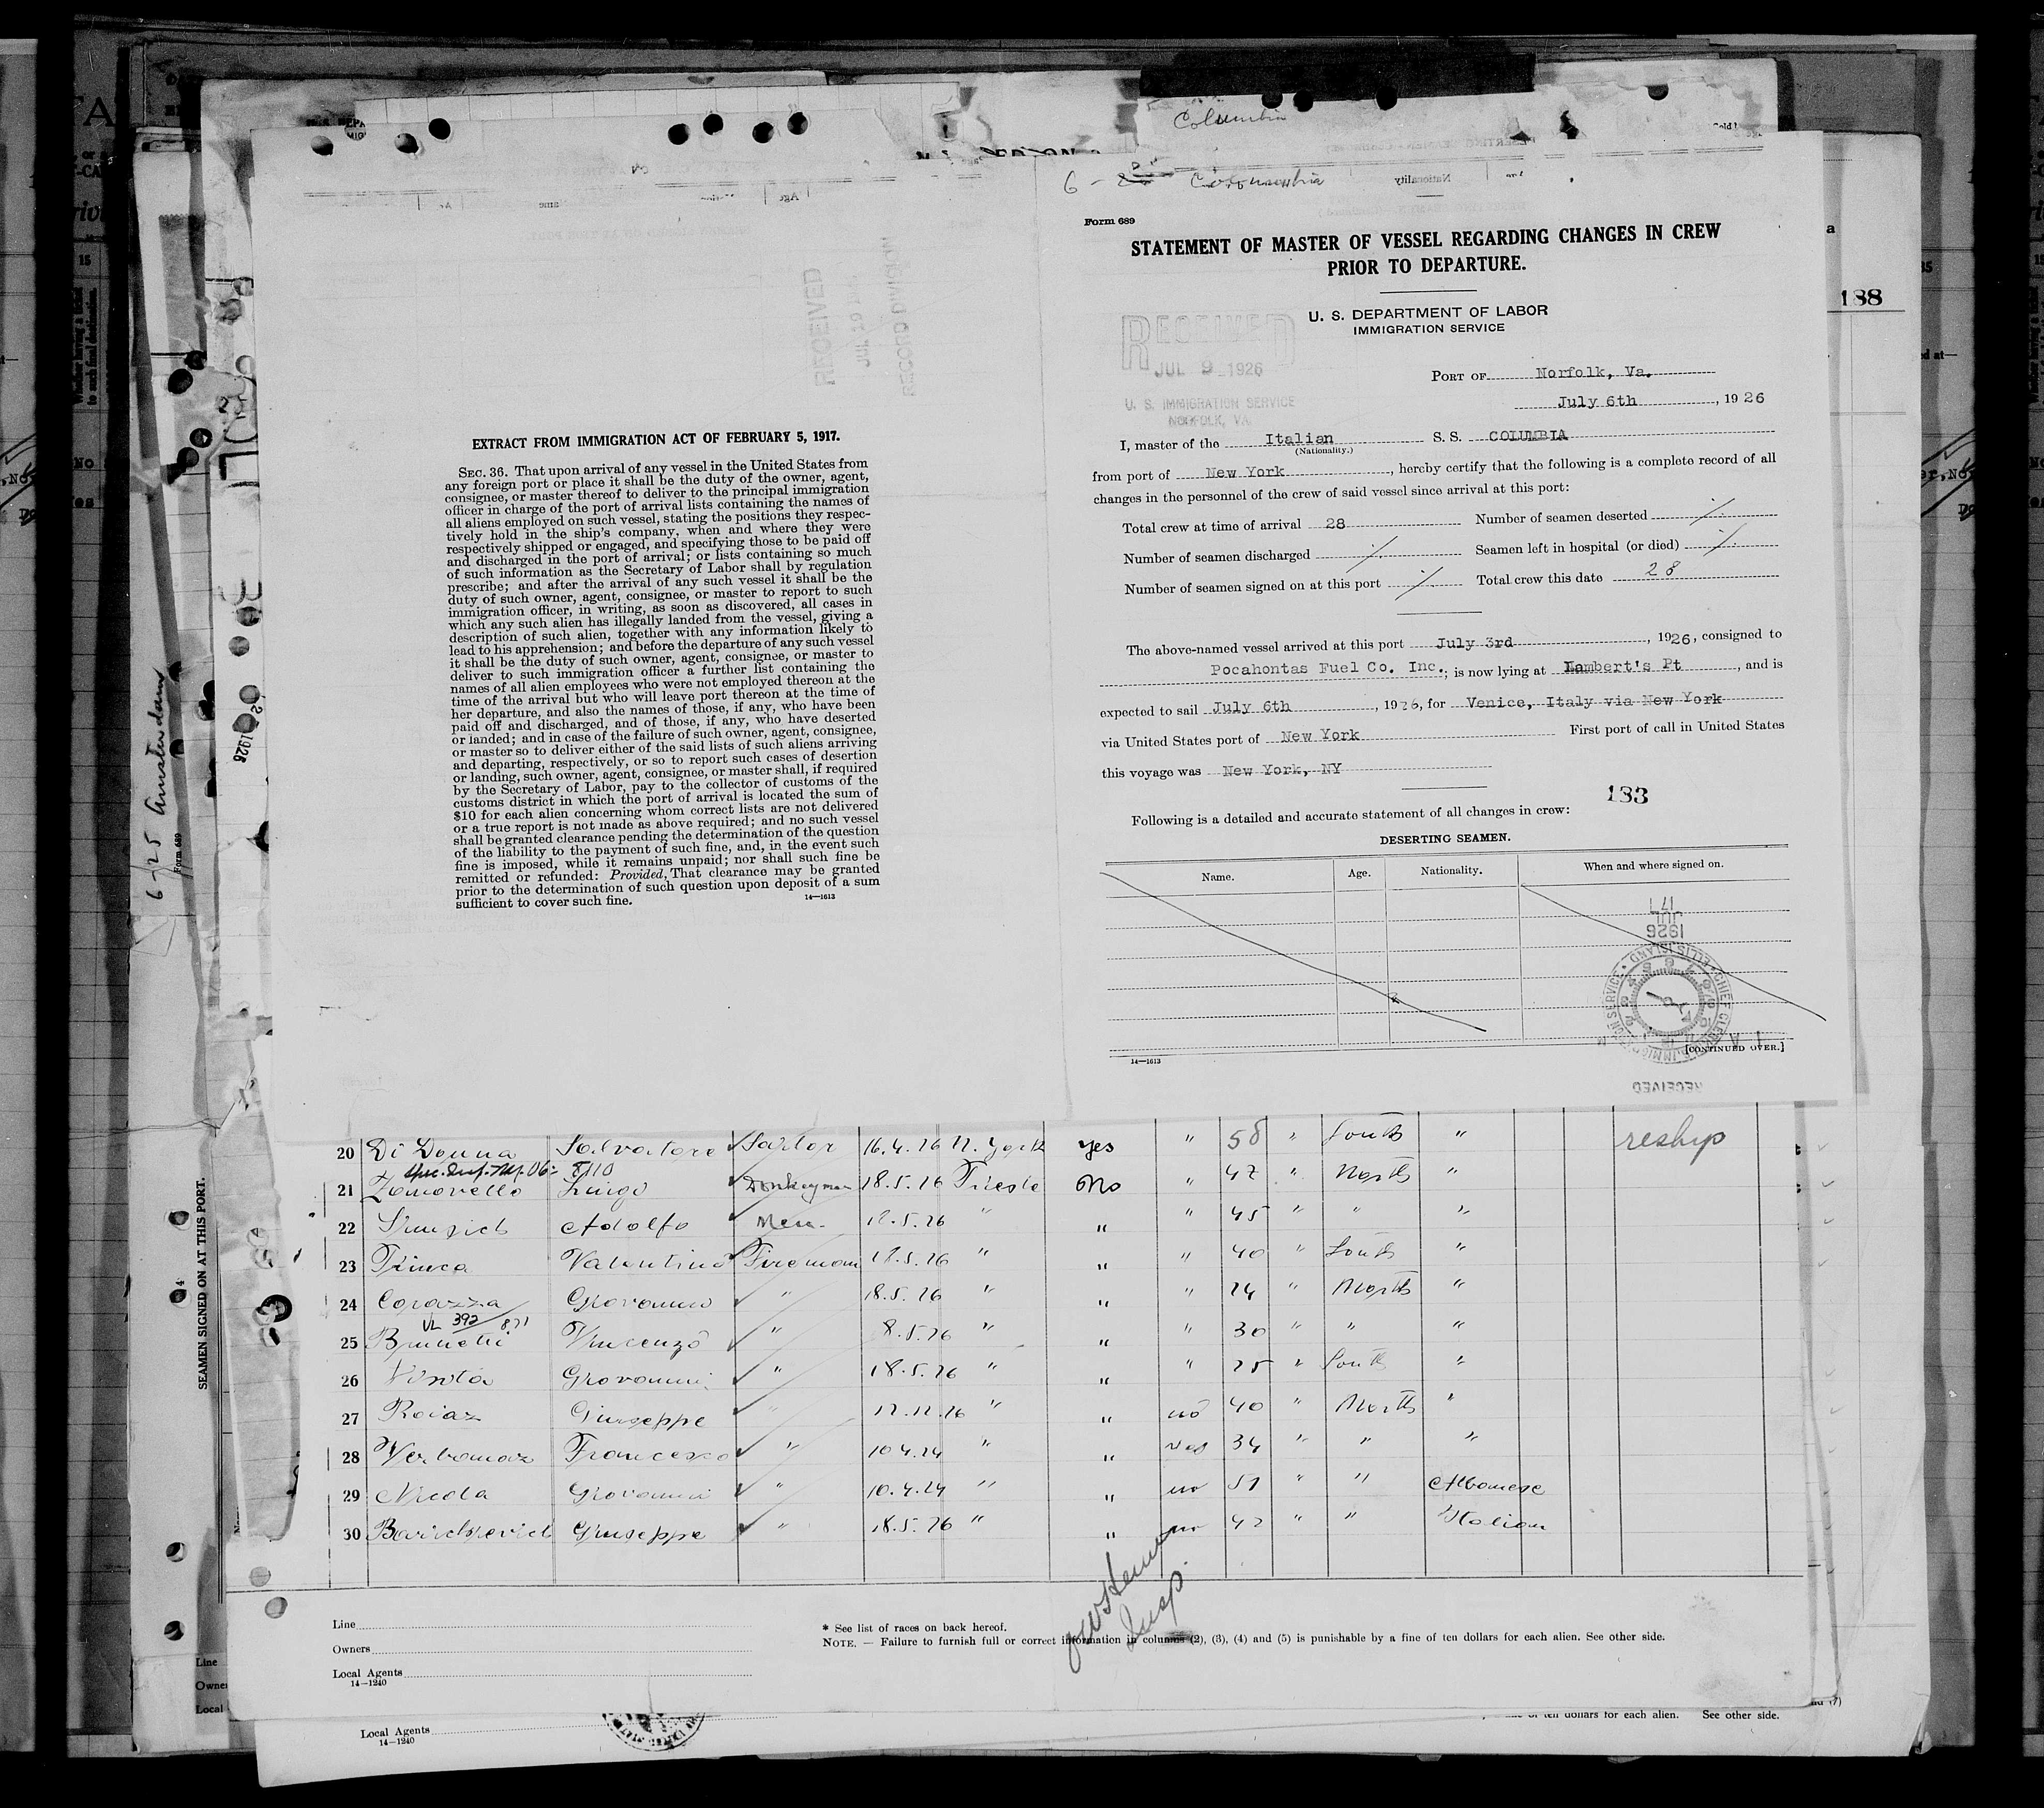 Columbia
6 - 26 Columbia
Form 689
STATEMENT OF MASTER OF VESSEL REGARDING CHANGES IN CREW
PRIOR TO DEPARTURE.
U. S. DEPARTMENT OF LABOR
IMMIGRATION SERVICE
RECEIVED
JUL 9 1926
U. S. IMMIGRATION SERVICE
NORFOLK, VA
PORT OF Norfolk, Va.
July 6th, 1926
I, master of the Italian S. S. COLUMBIA
(Nationality.)
from port of New York, hereby certify that the following is a complete record of all
changes in the personnel of the crew of said vessel since arrival at this port:
Total crew at time of arrival 28 Number of seamen deserted /
Number of seamen discharged / Seamen left in hospital (or died) /
Number of seamen signed on at this port / Total crew this date 28
The above-named vessel arrived at this port July 3rd, 1926, consigned to
Pocahontas Fuel Co. Inc.; is now lying at Lambert's Pt, and is
expected to sail July 6th, 1926, for Venice, Italy via New York
via United States port of New York First port of call in United States
this voyage was New York, NY
183
Following is a detailed and accurate statement of all changes in crew:
DESERTING SEAMEN.
Name. Age. Nationality. When and where signed on.
JUL 1926
[CONTINUED OVER.]
14—1613
RECEIVED
RECEIVED
RECORD DIVISION
EXTRACT FROM IMMIGRATION ACT OF FEBRUARY 5, 1917.
SEC. 36. That upon arrival of any vessel in the United States from
any foreign port or place it shall be the duty of the owner, agent,
consignee, or master thereof to deliver to the principal immigration
officer in charge of the port of arrival lists containing the names of
all aliens employed on such vessel, stating the positions they respec-
tively hold in the ship's company, when and where they were
respectively shipped or engaged, and specifying those to be paid off
and discharged in the port of arrival; or lists containing so much
of such information as the Secretary of Labor shall by regulation
prescribe; and after the arrival of any such vessel it shall be the
duty of such owner, agent, consignee, or master to report to such
immigration officer, in writing, as soon as discovered, all cases in
which any such alien has illegally landed from the vessel, giving a
description of such alien, together with any information likely to
lead to his apprehension; and before the departure of any such vessel
it shall be the duty of such owner, agent, consignee, or master to
deliver to such immigration officer a further list containing the
names of all alien employees who were not employed thereon at the
time of the arrival but who will leave port thereon at the time of
her departure, and also the names of those, if any, who have been
paid off and discharged, and of those, if any, who have deserted
or landed; and in case of the failure of such owner, agent, consignee,
or master so to deliver either of the said lists of such aliens arriving
and departing, respectively, or so to report such cases of desertion
or landing, such owner, agent, consignee, or master shall, if required
by the Secretary of Labor, pay to the collector of customs of the
customs district in which the port of arrival is located the sum of
$10 for each alien concerning whom correct lists are not delivered
or a true report is not made as above required; and no such vessel
shall be granted clearance pending the determination of the question
of the liability to the payment of such fine, and, in the event such
fine is imposed, while it remains unpaid; nor shall such fine be
remitted or refunded: Provided, That clearance may be granted
prior to the determination of such question upon deposit of a sum
sufficient to cover such fine.
14—1613
188
6/25 Amsterdam
Form 689
SEAMEN SIGNED ON AT THIS PORT.
20 Di Donna Salvatore Sailor 16.4.26 N. York yes " 58 " South " reship
21 Zanovello Luigi Donkeyman 18.5.26 Trieste No " 42 " North "
22 Adolfo Mess. 18.5.26 " " " 45 " " "
23 Trinca Valentino Fireman 18.5.26 " " " 40 " South "
24 Corazza Giovanni " 18.5.26 " " " 24 " North "
VL 392/871
25 Brunetti Vincenzo " 8.5.26 " " " 30 " " "
26 Giovanni " 18.5.26 " " " 25 " South "
27 Roiaz Giuseppe " 12.12.26 " " no 40 " North "
28 Verbamaz Francesco " 10.4.24 " " yes 34 " " "
29 Giovanni " 10.4.24 " " no 51 " " Albanese
30 Barichievich Giuseppe " 18.5.26 " " no 42 " " Italian
Insp.
Line
Owners
Local Agents
14—1240
* See list of races on back hereof.
NOTE. — Failure to furnish full or correct information in columns (2), (3), (4) and (5) is punishable by a fine of ten dollars for each alien. See other side.
Line
Local
Local Agents
14—1240
ten dollars for each alien. See other side.